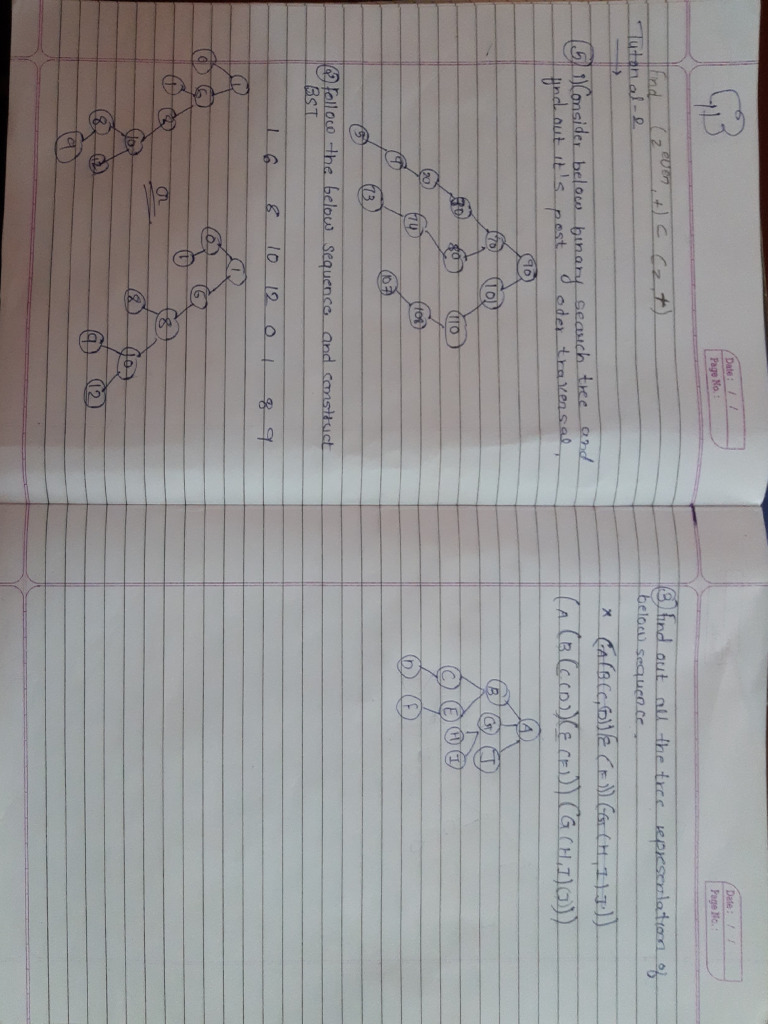 G3
Date: / /
Page No.:
find (z even, +) ⊂ (z, +)
Tutorial-2
→
⑤ 1) Consider below binary search tree and
find out it's post oder traversal,
90
70 101
80 110
20 14 108
9 73 107
5
② follow the below sequence and construct
BST
1 6 8 10 12 0 1 8 9
1
0 6
1
10
8 12
9
1
0 6
1 8
8 10
9 12
Date: / /
Page No.:
③ find out all the tree representation of
below sequence.
(A (B (C (D)) (E (F))) (G (H, I) (J)))
A
B G J
C E H I
D F